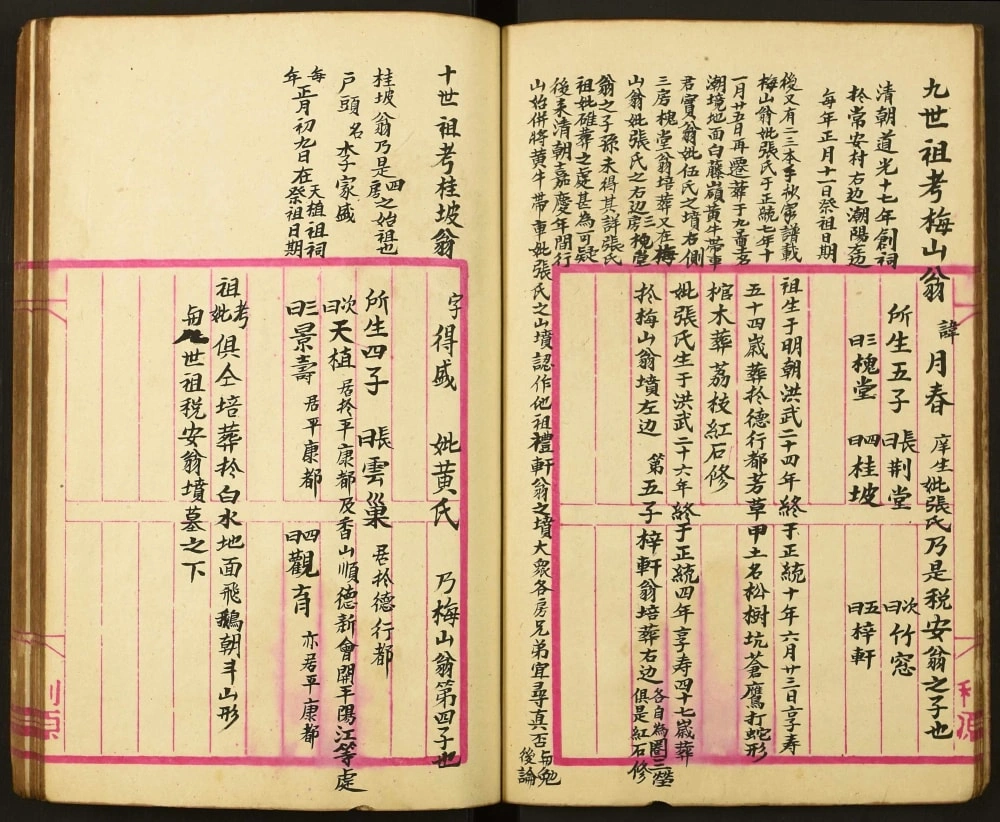 九世祖考梅山翁 諱月春 庠生妣張氏乃是税安翁之子也
清朝道光十七年創祠
於常安村右边潮陽左边
每年正月十一日祭祖日期
所生五子 長曰荆堂 次曰竹窓
三曰槐堂 四曰桂坡 五曰梓軒
後又有二三本手抄家譜載
梅山翁妣張氏于正統七年十
一月廿五日再遷葬于九
潮境地面白藤嶺黄牛帶車
君實翁妣伍氏之墳右側
三房槐堂翁培葬又在梅
山翁妣張氏之右边三房槐堂
翁之子孫未得其詳張氏
祖妣碓葬之處甚為可疑
後来清朝嘉慶年間行
祖生于明朝洪武二十四年終于正統十年六月廿三日享寿
五十四歳葬於德行都芳草甲土名松樹坑蒼鷹打蛇形
棺木葬荔枝紅石修
妣張氏生于洪武二十六年終于正統四年享寿四十七歳葬
於梅山翁墳左边 第五子梓軒翁培葬右边 各自為圈三塋俱是紅石修
山始併將黄牛帶車妣張氏之山墳認作他祖禮軒翁之墳大衆各房兄弟宜尋真否 毋免後論
十世祖考桂坡翁 字得盛 妣黄氏 乃梅山翁第四子也
桂坡翁乃是四房之始祖也
戶頭名李家盛
每年正月初九日在天植祖祠祭祖日期
所生四子 長曰雲巢 居於德行都
次曰天植 居於平康都及香山順德新會開平陽江等處
三曰景壽 居平康都 四曰觀育 亦居平康都
祖考妣俱仝培葬於白水地面飛鵝朝斗山形
與九世祖税安翁墳墓之下